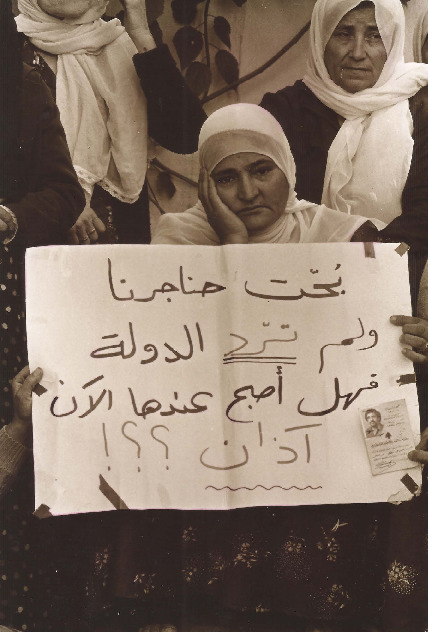 بُحّت حناجرنا
ولم تردّ الدولة
فهل أصبح عندها الآن
آذان ؟؟؟!